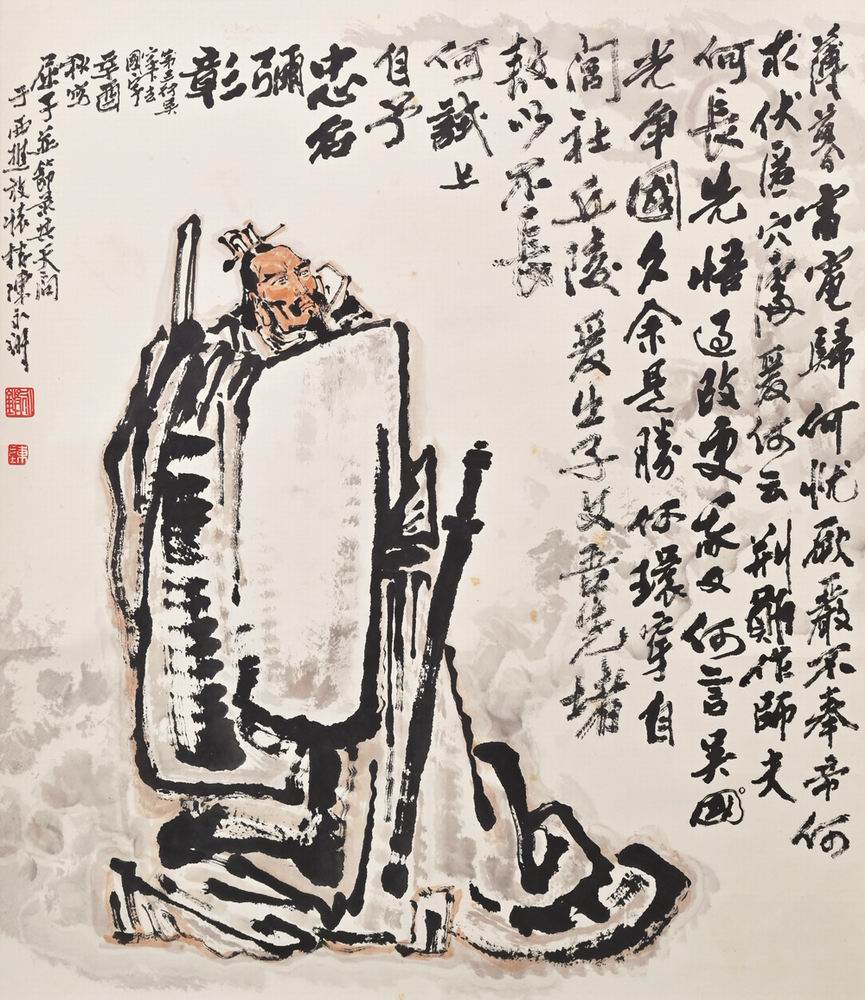 薄暮雷電歸何忧厥嚴不奉帝何
求伏匿穴處爰何云荆勛作師夫
何長先悟過改更我又何言吳國
光爭國久余是勝何環穿自
閭社丘陵爰出子文吾告堵
敖以不長
何試上
自予
忠名
彌
彰
第三行吳
字下去
國字
辛酉
秋寫
屈子並節录其天問
于西樵放懷樓陳永鏘